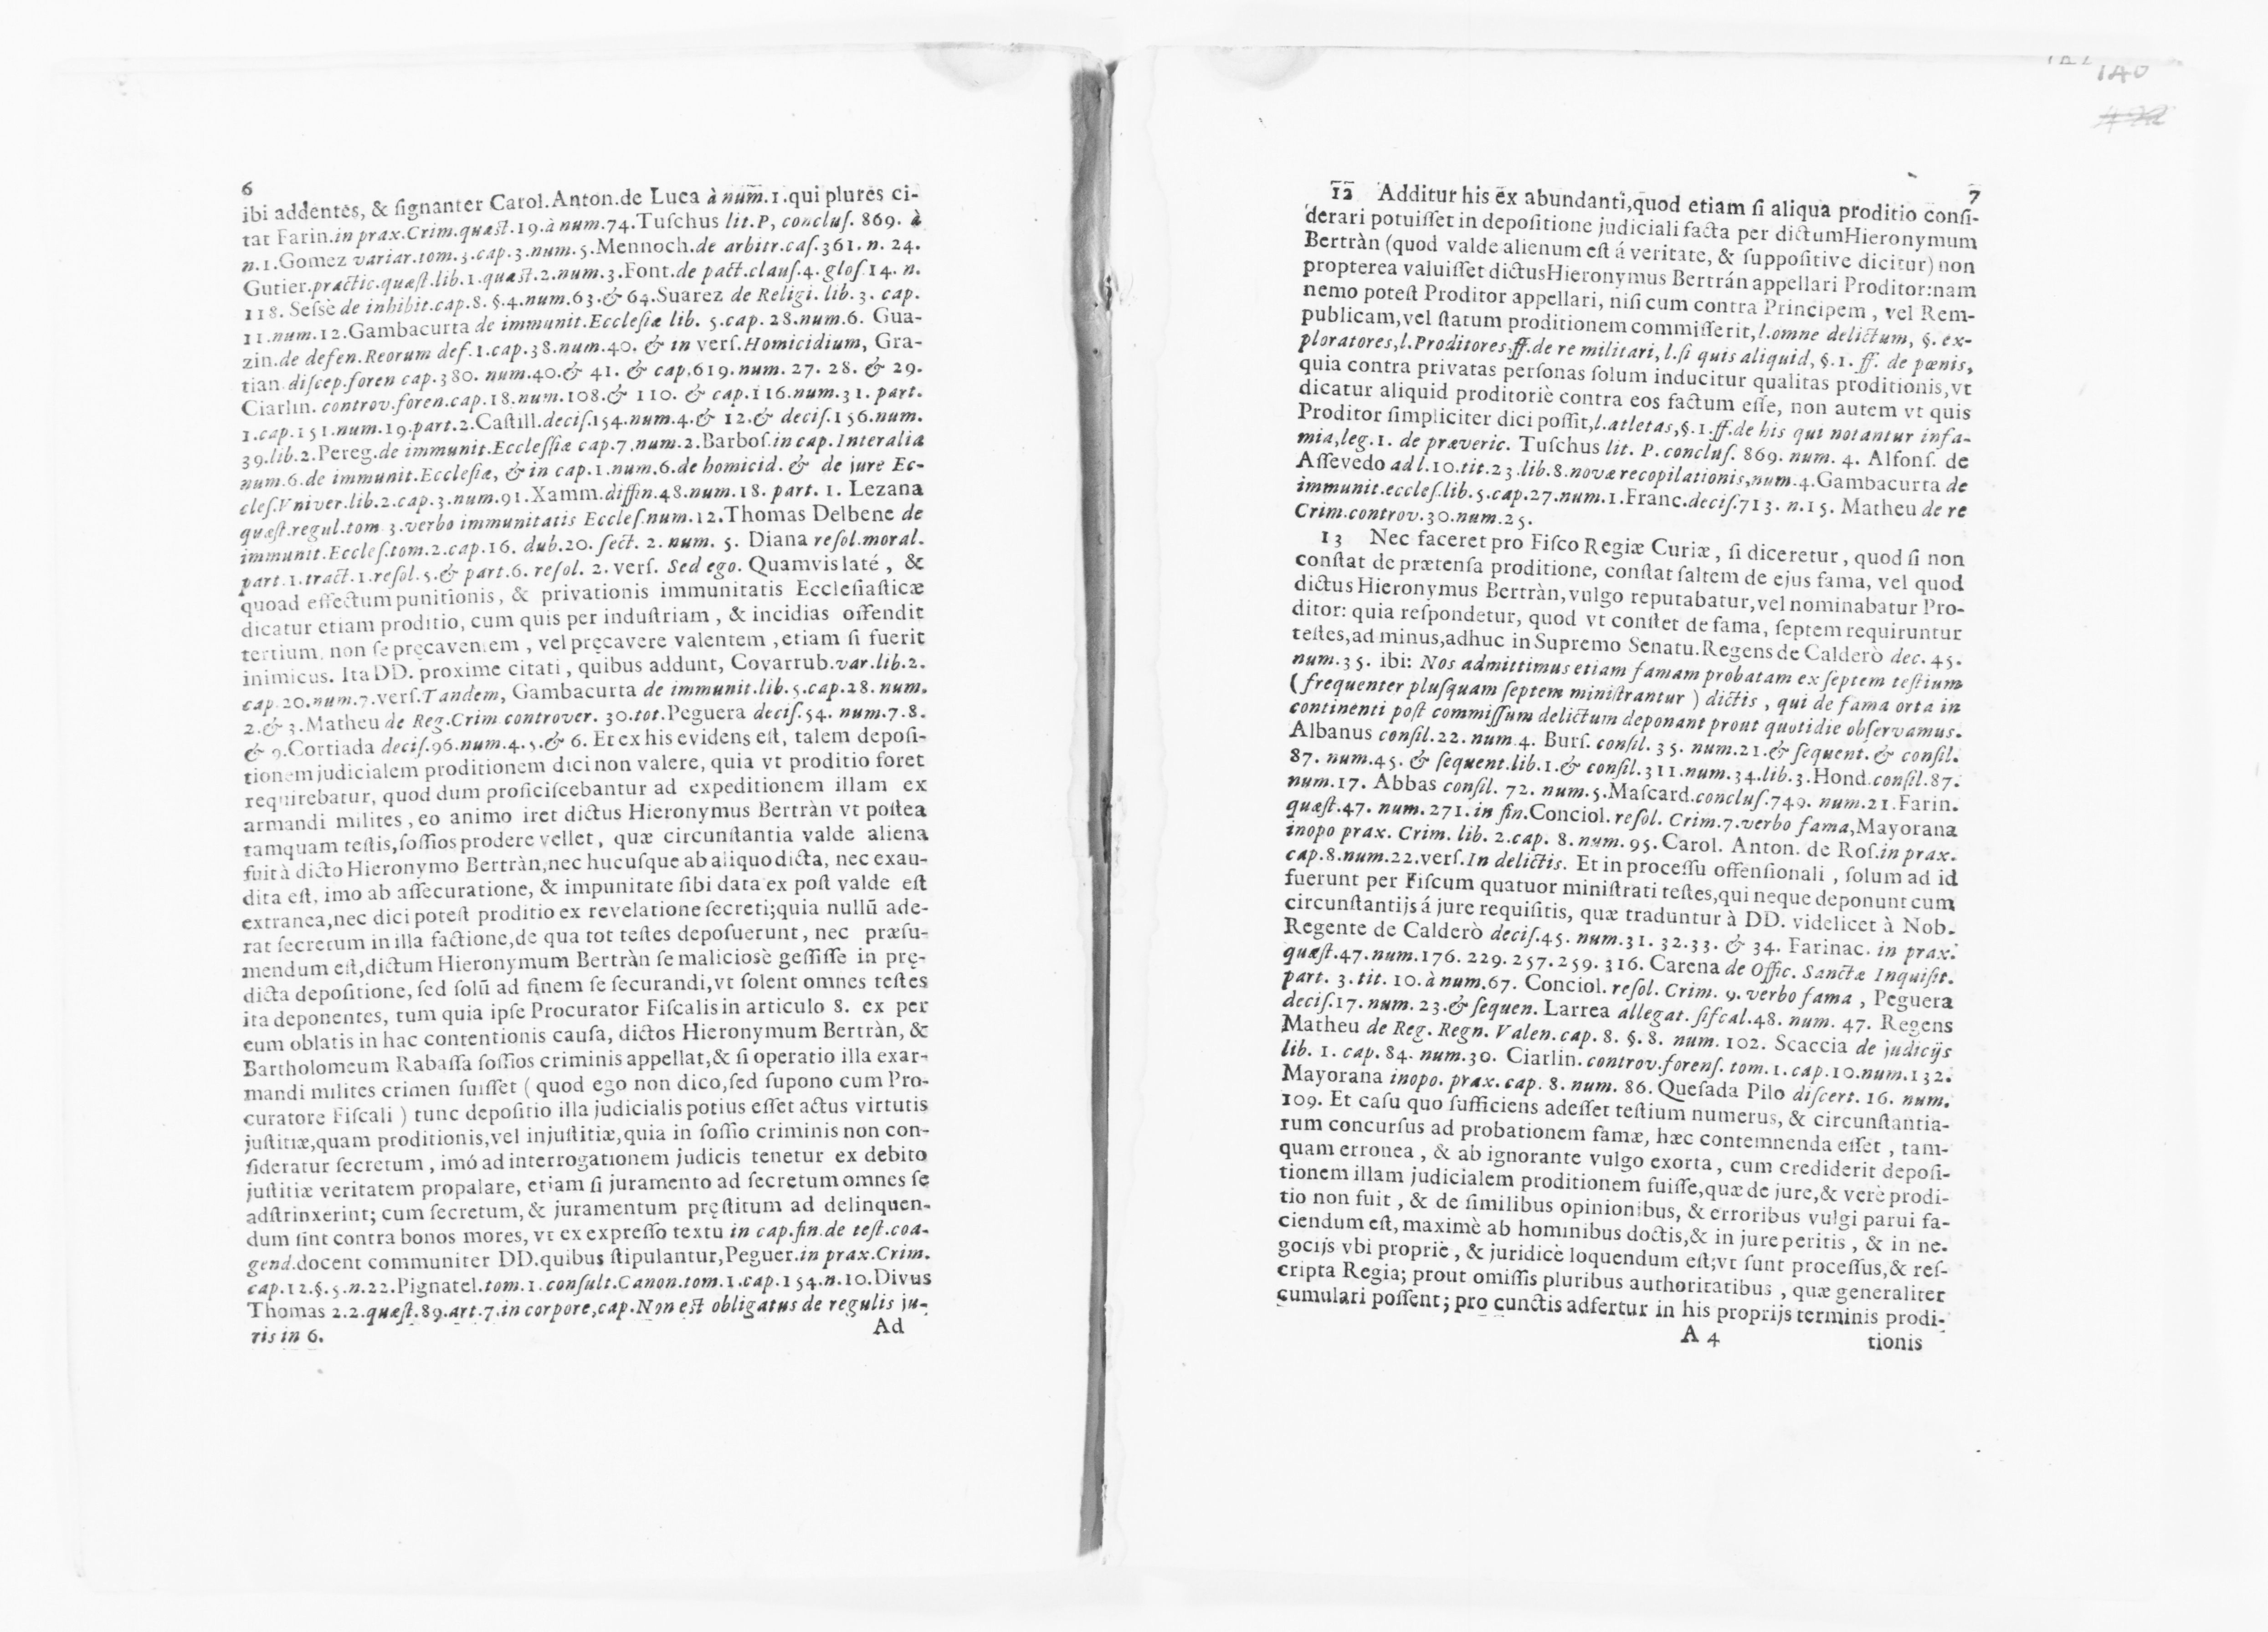 6
ibi addentes, & ſignanter Carol.Anton.de Luca à num.1.qui plures ci-
tat Farin.in prax.Crim.quæst.19.à num.74.Tuſchus lit.P, concluſ. 869. à
n.1.Gomez variar.tom.3.cap.3.num.5.Mennoch.de arbitr.caſ.361. n. 24.
Gutier.practic.quæſt.lib.1.quæst.2.num.3.Font.de pact.clauſ.4. gloſ.14. n.
118. Seſsè de inhibit.cap.8. §.4.num.63.& 64.Suarez de Religi. lib. 3. cap.
11.num.12.Gambacurta de immunit.Eccleſiæ lib. 5.cap. 28.num.6. Gua-
zin.de defen.Reorum def.1.cap.38.num.40. & in verſ.Homicidium, Gra-
tian.diſcep.foren cap.380. num.40.& 41. & cap.619.num. 27. 28. & 29.
Ciarlin. controv.foren.cap.18.num.108.& 110. & cap.116.num.31. part.
1.cap.151.num.19.part.2.Caſtill.deciſ.154.num.4.& 12.& deciſ.156.num.
39.lib.2.Pereg.de immunit.Eccleſſiæ cap.7.num.2.Barboſ.in cap.Interalia
num.6.de immunit.Eccleſiæ, & in cap.1.num.6.de homicid. & de jure Ec-
cleſ.Vniver.lib.2.cap.3.num.91.Xamm.diffin.48.num.18. part. 1. Lezana
quæſt.regul.tom 3.verbo immunitatis Eccleſ.num.12.Thomas Delbene de
immunit.Eccleſ.tom.2.cap.16. dub.20. ſect. 2. num. 5. Diana reſol.moral.
part.1.tract.1.reſol.5.& part.6. reſol. 2. verſ. Sed ego. Quamvis laté, &
quoad effectum punitionis, & privationis immunitatis Eccleſiaſticæ
dicatur etiam proditio, cum quis per induſtriam, & incidias offendit
tertium, non ſe pręcaventem, vel pręcavere valentem, etiam ſi fuerit
inimicus. Ita DD. proxime citati, quibus addunt, Covarrub.var.lib.2.
cap.20.num.7.verſ.Tandem, Gambacurta de immunit.lib.5.cap.28. num.
2.& 3.Matheu de Reg.Crim controver. 30.tot.Peguera deciſ.54. num.7.8.
& 9.Cortiada deciſ.96.num.4.5.& 6. Et ex his evidens eſt, talem depoſi-
tionem judicialem proditionem dici non valere, quia vt proditio foret
requirebatur, quod dum proficiſcebantur ad expeditionem illam ex
armandi milites, eo animo iret dictus Hieronymus Bertràn vt poſtea
tamquam teſtis,ſoſſios prodere vellet, quæ circunſtantia valde aliena
fuit à dicto Hieronymo Bertràn,nec hucuſque ab aliquo dicta, nec exau-
dita eſt, imo ab aſſecuratione, & impunitate ſibi data ex poſt valde eſt
extranea,nec dici poteſt proditio ex revelatione ſecreti;quia nullū ade-
rat ſecretum in illa factione,de qua tot teſtes depoſuerunt, nec præſu-
mendum eſt,dictum Hieronymum Bertràn ſe malicioſè geſſiſſe in prę-
dicta depoſitione, ſed ſolū ad finem ſe ſecurandi,vt ſolent omnes teſtes
ita deponentes, tum quia ipſe Procurator Fiſcalis in articulo 8. ex per
eum oblatis in hac contentionis cauſa, dictos Hieronymum Bertràn, &
Bartholomeum Rabaſſa ſoſſios criminis appellat,& ſi operatio illa exar-
mandi milites crimen fuiſſet ( quod ego non dico,ſed ſupono cum Pro-
curatore Fiſcali ) tunc depoſitio illa judicialis potius eſſet actus virtutis
juſtitiæ,quam proditionis,vel injuſtitiæ,quia in ſoſſio criminis non con-
ſideratur ſecretum, imó ad interrogationem judicis tenetur ex debito
juſtitiæ veritatem propalare, etiam ſi juramento ad ſecretum omnes ſe
adſtrinxerint; cum ſecretum, & juramentum pręſtitum ad delinquen-
dum ſint contra bonos mores, vt ex expreſſo textu in cap.fin.de teſt.coa-
gend.docent communiter DD.quibus ſtipulantur,Peguer.in prax.Crim.
cap.12.§.5.n.22.Pignatel.tom.1.conſult.Canon.tom.1.cap.154.n.10.Divus
Thomas 2.2.quæſt.89.art.7.in corpore,cap.Non est obligatus de regulis ju-
ris in 6.
Ad
140
7
12 Additur his ex abundanti,quod etiam ſi aliqua proditio conſi-
derari potuiſſet in depoſitione judiciali facta per dictumHieronymum
Bertràn (quod valde alienum eſt á veritate, & ſuppoſitive dicitur) non
propterea valuiſſet dictusHieronymus Bertrán appellari Proditor:nam
nemo poteſt Proditor appellari, niſi cum contra Principem, vel Rem-
publicam,vel ſtatum proditionem commiſſerit,l.omne delictum, §. ex-
ploratores,l.Proditores,ff.de re militari, l.ſi quis aliquid, §.1. ff. de pœnis,
quia contra privatas perſonas ſolum inducitur qualitas proditionis,vt
dicatur aliquid proditoriè contra eos factum eſſe, non autem vt quis
Proditor ſimpliciter dici poſſit,l.atletas,§.1.ff.de his qui notantur infa-
mia,leg.1. de præveric. Tuſchus lit. P. concluſ. 869. num. 4. Alfonſ. de
Aſſevedo ad l.10.tit.23.lib.8.novæ recopilationis,num.4.Gambacurta de
immunit.eccleſ.lib.5.cap.27.num.1.Franc.deciſ.713. n.15. Matheu de re
Crim.controv.30.num.25.
13 Nec faceret pro Fiſco Regiæ Curiæ, ſi diceretur, quod ſi non
conſtat de prætenſa proditione, conſtat ſaltem de ejus fama, vel quod
dictus Hieronymus Bertràn,vulgo reputabatur,vel nominabatur Pro-
ditor: quia reſpondetur, quod vt conſtet de fama, ſeptem requiruntur
teſtes,ad minus,adhuc in Supremo Senatu.Regens de Calderò dec. 45.
num.35. ibi: Nos admittimus etiam famam probatam ex ſeptem teſtium
( frequenter pluſquam ſeptem miniſtrantur ) dictis, qui de fama orta in
continenti poſt commiſſum delictum deponant prout quotidie obſervamus.
Albanus conſil.22. num.4. Burſ. conſil. 35. num.21.& ſequent. & conſil.
87. num.45. & ſequent.lib.1.& conſil.311.num.34.lib.3.Hond.conſil.87.
num.17. Abbas conſil. 72. num.5.Maſcard.concluſ.749. num.21.Farin.
quæſt.47. num.271.in fin.Conciol.reſol. Crim.7.verbo fama,Mayorana
inopo prax. Crim. lib. 2.cap. 8. num. 95. Carol. Anton. de Roſ.in prax.
cap.8.num.22.verſ.In delictis. Et in proceſſu offenſionali, ſolum ad id
fuerunt per Fiſcum quatuor miniſtrati teſtes,qui neque deponunt cum
circunſtantijs á jure requiſitis, quæ traduntur à DD. videlicet à Nob.
Regente de Calderò deciſ.45. num.31. 32.33. & 34. Farinac. in prax.
quæſt.47.num.176. 229. 257.259. 316. Carena de Offic. Sanctæ Inquiſit.
part. 3. tit. 10. à num.67. Conciol. reſol. Crim. 9. verbo fama, Peguera
deciſ.17. num. 23.& ſequen. Larrea allegat. fiſcal.48. num. 47. Regens
Matheu de Reg. Regn. Valen. cap. 8. §. 8. num. 102. Scaccia de judicijs
lib. 1. cap. 84. num.30. Ciarlin. controv.forenſ. tom. 1. cap.10.num.132.
Mayorana inopo. prax. cap. 8. num. 86. Queſada Pilo diſcert. 16. num.
109. Et caſu quo ſufficiens adeſſet teſtium numerus, & circunſtantia-
rum concurſus ad probationem famæ, hæc contemnenda eſſet, tam-
quam erronea, & ab ignorante vulgo exorta, cum crediderit depoſi-
tionem illam judicialem proditionem fuiſſe,quæ de jure,& verè prodi-
tio non fuit, & de ſimilibus opinionibus, & erroribus vulgi parui fa-
ciendum eſt, maximè ab hominibus doctis,& in jure peritis, & in ne-
gocijs vbi propriè, & juridicè loquendum eſt;vt ſunt proceſſus,& reſ-
cripta Regia; prout omiſſis pluribus authoritatibus, quæ generaliter
cumulari poſſent; pro cunctis adfertur in his proprijs terminis prodi-
A 4
tionis